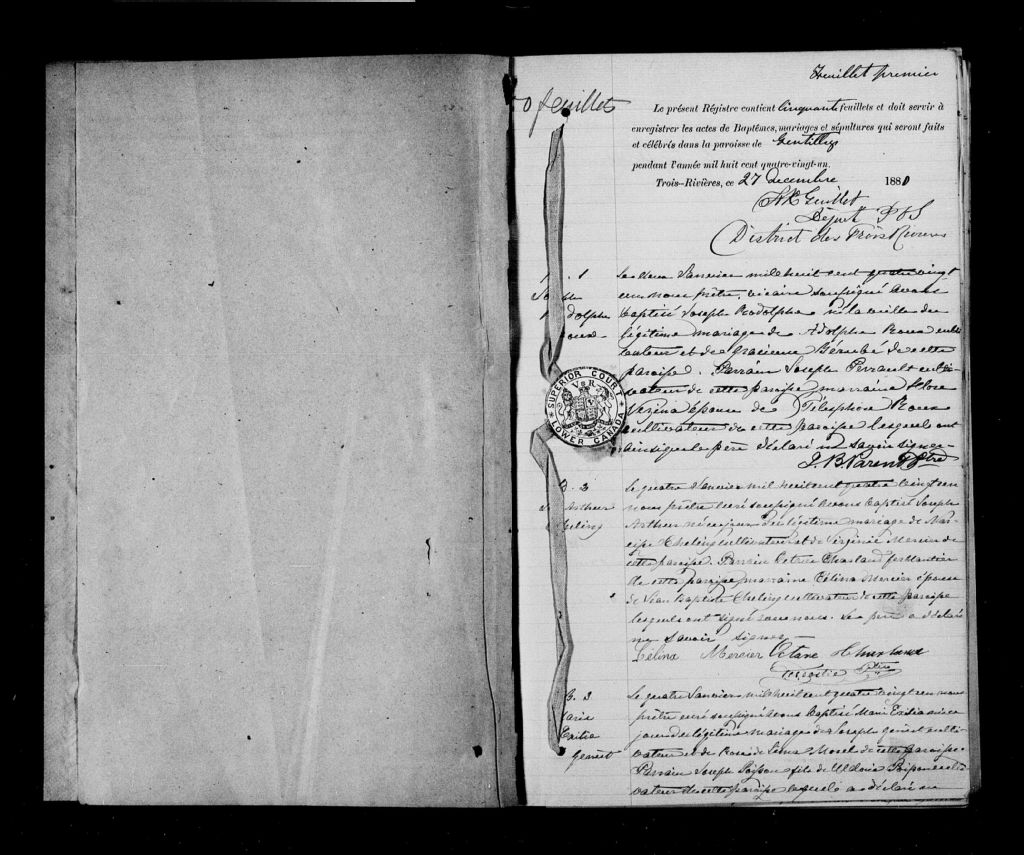 Feuillet premier
0 feuillets
Le présent Régistre contient cinquante feuillets et doit servir à
enregistrer les actes de Baptêmes, mariages et sépultures qui seront faits
et célébrés dans la paroisse de Gentilly
pendant l'année mil huit cent quatre-vingt-un.
Trois-Rivières, ce 27 decembre 1880
Guillet
Député P & S
District des Trois Rivieres
SUPERIOR COURT
V R
LOWER CANADA
1
Joseph
Rodolphe
Roux
Le deux Janvier mil huit cent quatre vingt
un nous prêtre, vicaire soussigné avons
baptisé Joseph Rodolphe né la veille du
légitime mariage de Adolphe Roux culti
vateur et de Gracieuse Bérubé de cette
paroisse. Parrain Joseph Perrault culti
vateur de cette paroisse marraine
Vezina épouse de Télesphore Roux
cultivateur de cette paroisse lesquels ont
ainsi que le père déclaré ne savoir signer
J. B. Parent Ptre
B. 2
Arthur
Le quatre Janvier mil huit cent quatre vingt un
nous prêtre curé soussigné avons baptisé Joseph
Arthur né ce jour du légitime mariage de Nar
cisse cultivateur et de Virginie Mercier de
cette paroisse. Parrain Octave Charland ferblantier
de cette paroisse marraine Célina Mercier épouse
de Jean Baptiste cultivateur de cette paroisse
lesquels ont signé avec nous. Le père a déclaré
ne savoir signer
Célina Mercier Octave
Ptre
B. 3
Marie
Exilia
Genest
Le quatre Janvier mil huit cent quatre vingt un nous
prêtre curé soussigné avons baptisé Marie Exilia née ce
jour du légitime mariage de Joseph Genest culti
vateur et de Rose de Lima Morel de cette paroisse.
Parrain Joseph Poisson fils de Poisson culti
vateur de cette paroisse lequel a déclaré ne